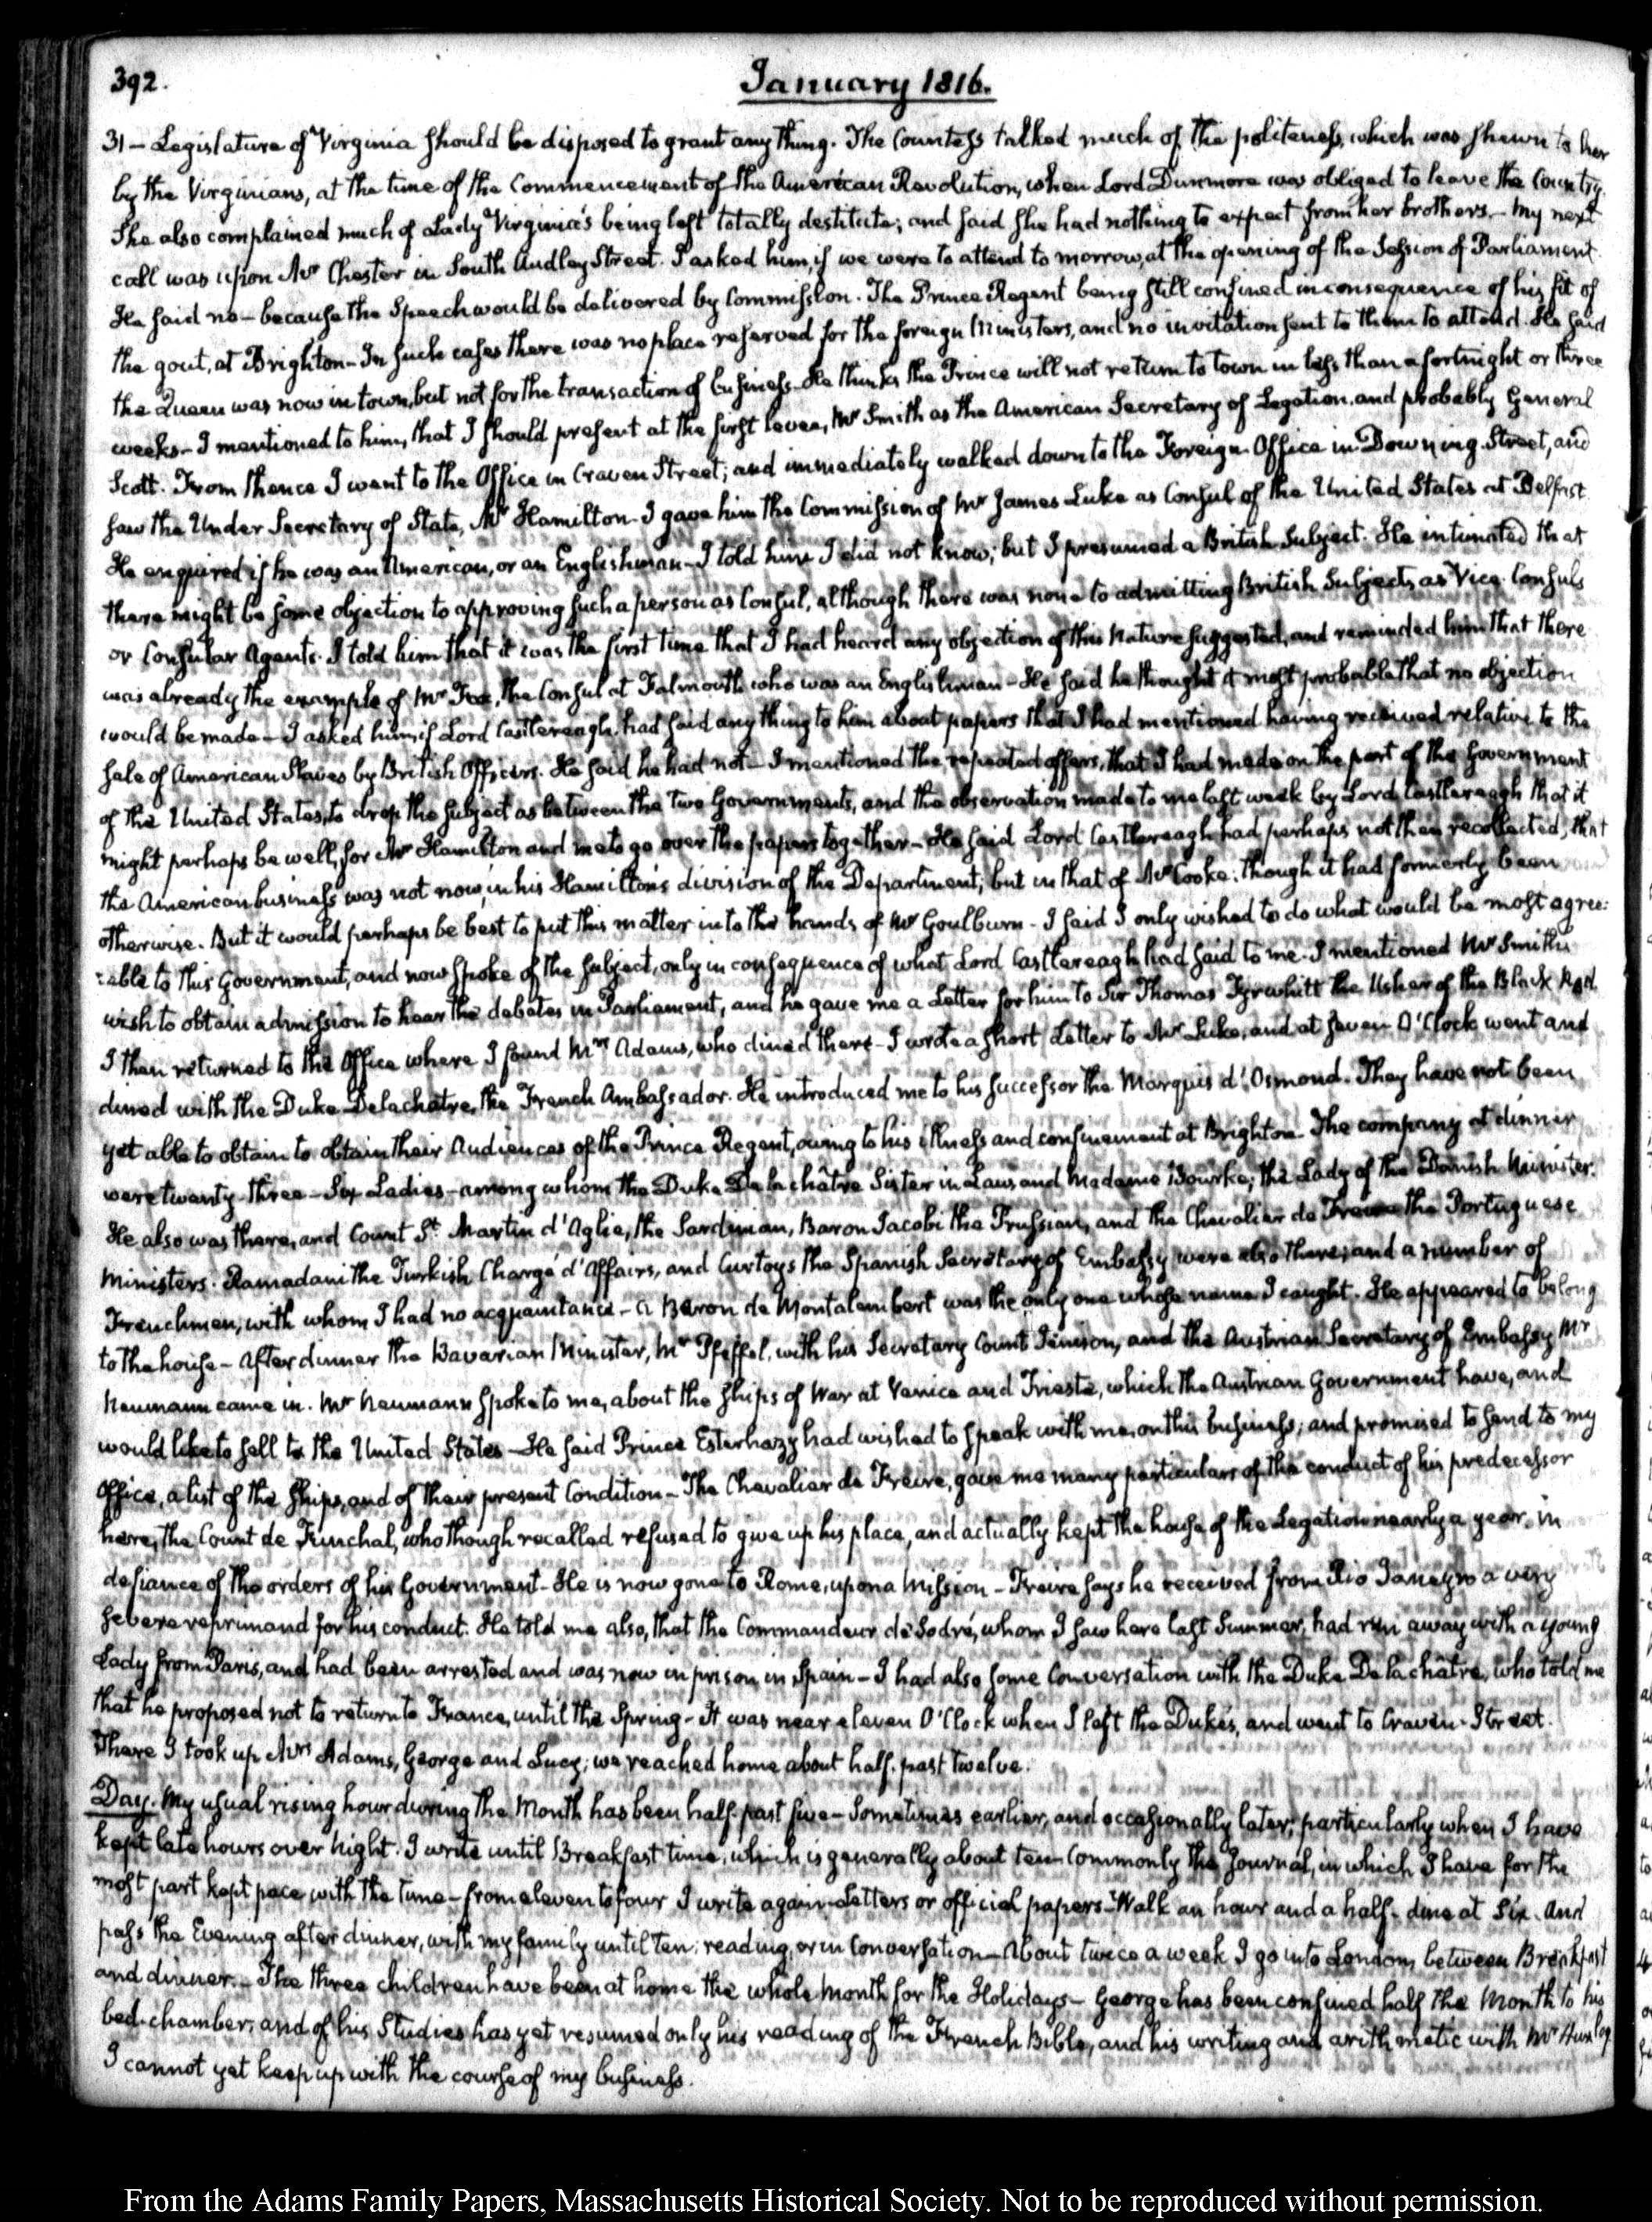 392.
January 1816.
31 – Legislature of Virginia should be disposed to grant any thing. The Countess talked much of the politeness, which was shewn to her
by the Virginians, at the time of the Commencement of the American Revolution, when Lord Dunmore was obliged to leave the Country.
She also complained much of Lady Virginia's being left totally destitute; and said she had nothing to expect from her brothers. – My next
call was upon Mr Chester in South Audley Street. I asked him, if we were to attend to morrow, at the opening of the Session of Parliament.
He said no – because the Speech would be delivered by Commission. The Prince Regent being still confined in consequence of his fit of
the gout, at Brighton – In such cases there was no place reserved for the foreign Ministers, and no invitation sent to them to attend. He said
the Queen was now in town, but not for the transaction of business. He thinks the Prince will not return to town in less than a fortnight or three
weeks – I mentioned to him, that I should present at the first levee, Mr Smith as the American Secretary of Legation, and probably General
Scott. From thence I went to the Office in Craven Street; and immediately walked down to the Foreign Office in Downing Street, and
saw the Under Secretary of State, Mr Hamilton – I gave him the Commission of Mr James Luke as Consul of the United States at Belfast.
He enquired if he was an American, or an Englishman – I told him I did not know; but I presumed a British Subject. He intimated that
there might be some objection to approving such a person as Consul, although there was none to admitting British Subjects as Vice-Consuls
or Consular Agents. I told him that it was the first time that I had heard any objection of this nature suggested, and reminded him that there
was already the example of Mr Fox, the Consul at Falmouth who was an Englishman – He said he thought it most probable that no objection
would be made – I asked him, if Lord Castlereagh had said any thing to him about papers that I had mentioned having received relative to the
sale of American Slaves by British Officers. He said he had not – I mentioned the repeated offers, that I had made on the part of the Government
of the United States, to drop the subject as between the two Governments, and the observation made to me last week by Lord Castlereagh that it
might perhaps be well, for Mr Hamilton and me to go over the papers together – He said Lord Castlereagh had perhaps not then recollected, that
the American business was not now, in his Hamilton's division of the Department; but in that of Mr Cooke: though it had formerly been
otherwise. But it would perhaps be best to put this matter into the hands of Mr Goulburn – I said I only wished to do what would be most agree:
:able to this Government, and now spoke of the subject, only in consequence of what Lord Castlereagh had said to me. I mentioned Mr Smith's
wish to obtain admission to hear the debates in Parliament, and he gave me a Letter for him to Sir Thomas Tyrwhitt the Usher of the Black Rod.
I then returned to the Office where I found Mrs Adams, who dined there – I wrote a short Letter to Mr Luke, and at seven O'Clock went and
dined with the Duke Delachatre, the French Ambassador. He introduced me to his successor the Marquis d'Osmond. They have not been
yet able to obtain to obtain their Audiences of the Prince Regent, owing to his illness and confinement at Brighton. The company at dinner
were twenty-three – Six Ladies – among whom the Duke De la châtre Sister in Law, and Madame Bourke, the Lady of the Danish Minister.
He also was there, and Count St. Martin d'Aglie, the Sardinian, Baron Jacobi the Prussian, and the Chevalier de Freire the Portuguese
Ministers. Ramadani the Turkish Chargé d'Affairs, and Curtoys the Spanish Secretary of Embassy were also there; and a number of
Frenchmen, with whom I had no acquaintance – a Baron de Montalembert was the only one whose name I caught. He appeared to belong
to the house – After dinner the Bavarian Minister, Mr Pfeffel, with his Secretary Count Jenison, and the Austrian Secretary of Embassy Mr
Neumann came in. Mr Neumann spoke to me, about the ships of War at Venice and Trieste, which the Austrian Government have, and
would like to sell to the United States – He said Prince Esterhazy had wished to speak with me, on this business; and promised to send to my
Office, a list of the ships, and of their present Condition – The Chevalier de Freire, gave me many particulars of the conduct of his predecessor
here, the Count de Funchal, who though recalled refused to give up his place, and actually kept the house of the Legation nearly a year, in
defiance of the orders of his Government – He is now gone to Rome, upon a Mission – Freire says he received from Rio Janeyro a very
severe reprimand for his conduct. He told me also, that the Commandeur de Sodré, whom I saw here last Summer, had run away with a young
Lady from Paris, and had been arrested and was now in prison in Spain – I had also some Conversation with the Duke De la châtre, who told me
that he proposed not to return to France, until the Spring – It was near eleven O'Clock when I left the Duke's, and went to Craven-Street.
There I took up Mrs Adams, George and Lucy; we reached home about half-past twelve.
Day. My usual rising hour during the Month has been half-past five – Sometimes earlier, and occasionally later; particularly when I have
kept late hours over night. I write until Breakfast time, which is generally about ten – Commonly the Journal, in which I have for the
most part kept pace with the time – from eleven to four I write again – Letters or official papers – Walk an hour and a half – dine at Six. And
pass the Evening after dinner, with my family until Ten; reading, or in Conversation – About twice a week I go into London, between Breakfast
and dinner. – The three children have been at home the whole month for the Holidays – George has been confined half the Month to his
bed-chamber; and of his Studies has yet resumed only his reading of the French Bible, and his writing and arithmetic with Mr
I cannot yet keep up with the course of my business.
From the Adams Family Papers, Massachusetts Historical Society. Not to be reproduced without permission.